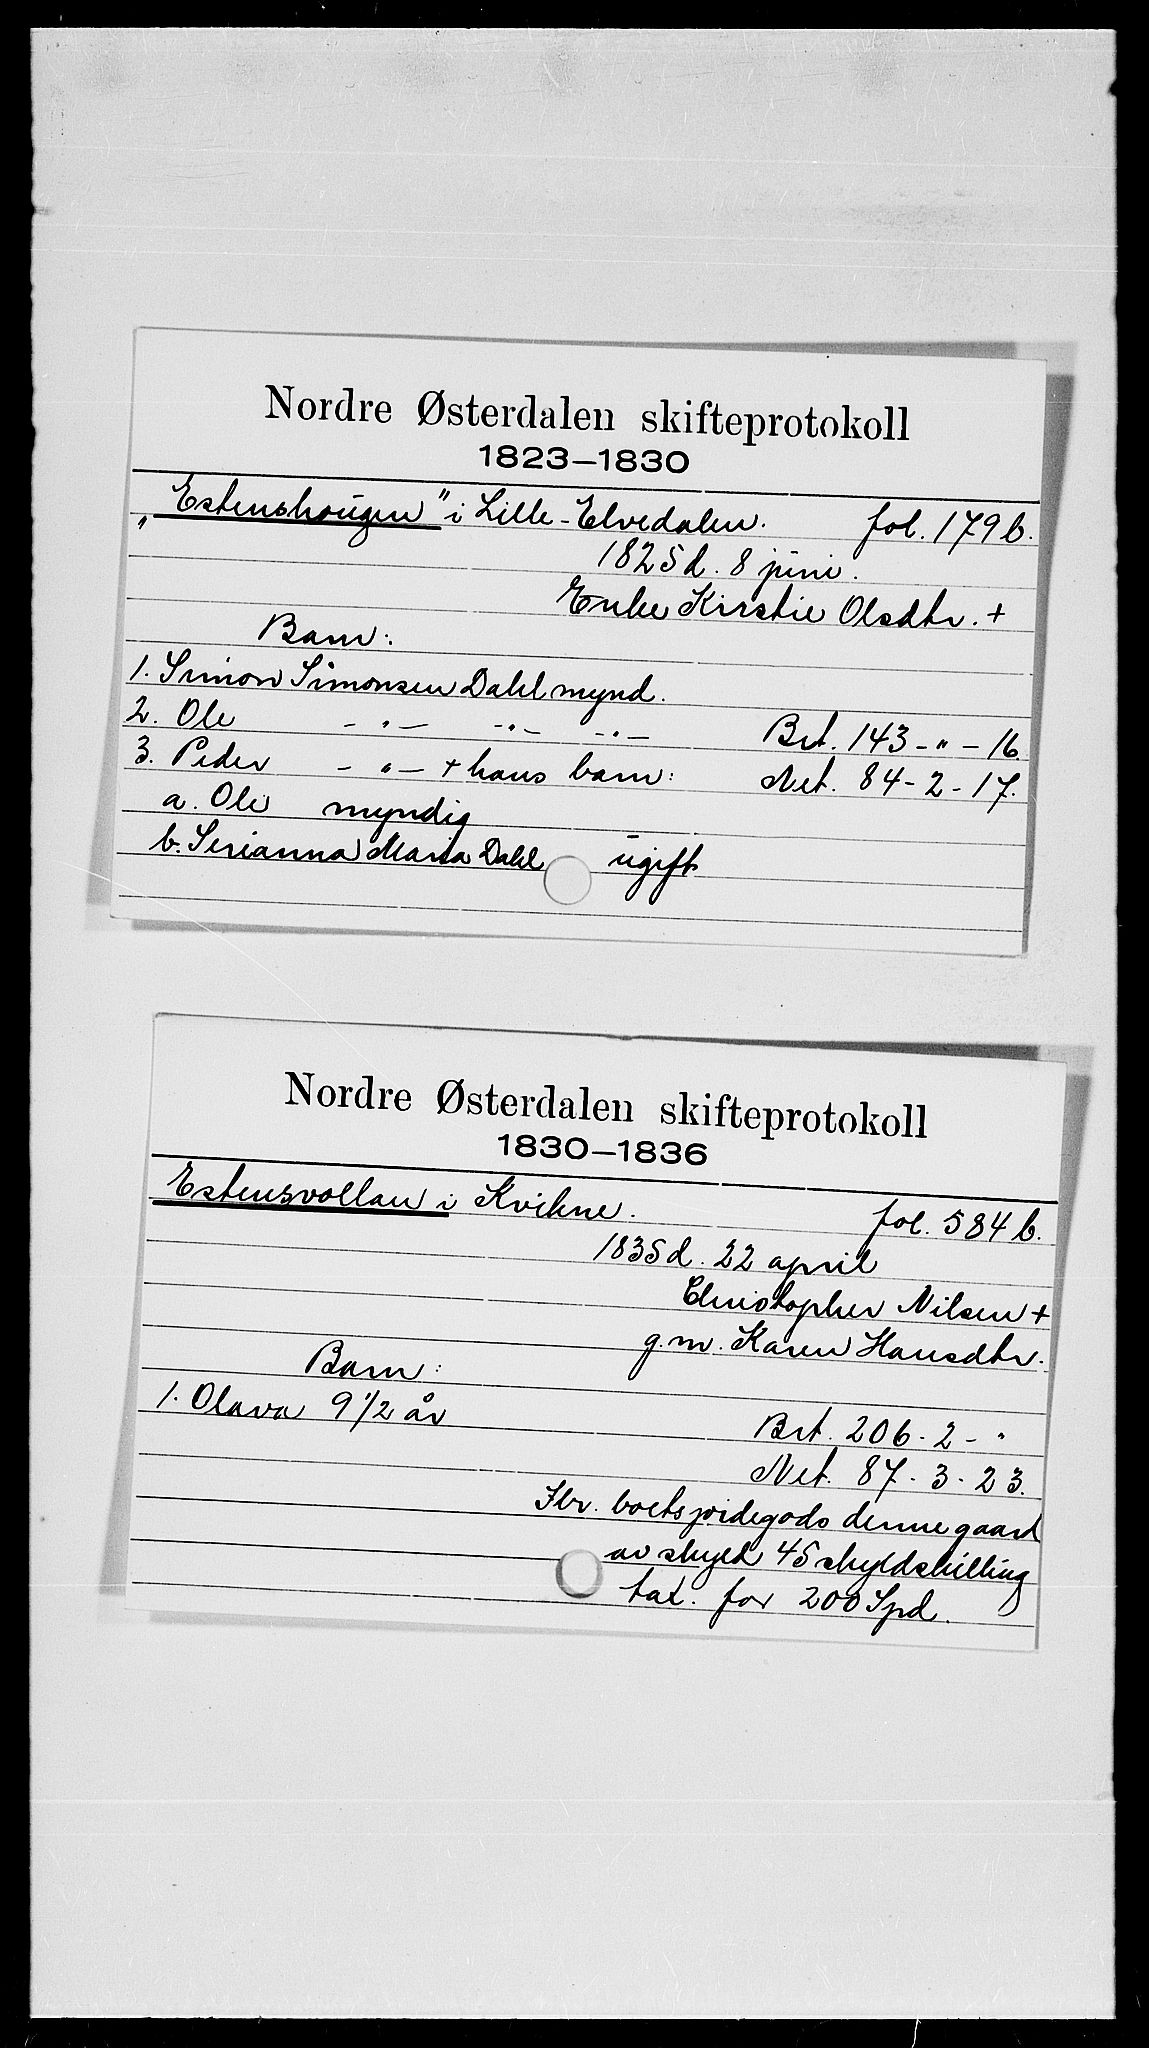 Nordre Østerdalen skifteprotokoll
1823–1830
„Estenshougen" i Lille-Elvedalen. fol. 179 b.
1825 d. 8 juni.
Enke Kirstie Olsdtr. +
Barn:
1. Simon Simonsen Dahl mynd.
2. Ole - " - - " - - " - Brt. 143 - " - 16.
3. Peder - " - + hans barn: Net. 84 - 2 - 17.
a. Ole myndig
b. Serianna Maria Dahl ugift
Nordre Østerdalen skifteprotokoll
1830–1836
Estensvollan i Kvikne. fol. 584 b.
1835 d. 22 april
Christopher Nilsen +
g.m. Karen Hansdtr.
Barn:
1. Olava 9 1/2 år
Brt. 206 - 2 - "
Net. 87 - 3 - 23.
Ibr. boets jordegods denne gaard
av skyld 45 skyldskilling
tax. for 200 Spd.